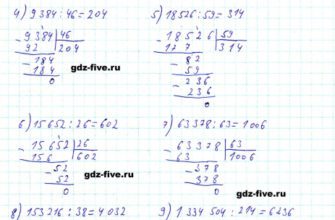 4) 9384 : 46 = 204
- 9384 | 46
92 | 204
- 184
184
0
gdz-five.ru
5) 18526 : 59 = 314
- 18526 | 59
177 | 314
- 82
59
- 236
236
0
gdz-five.ru
6) 15652 : 26 = 602
- 15652 | 26
156 | 602
- 52
52
0
gdz-five.ru
7) 63378 : 63 = 1006
- 63378 | 63
63 | 1006
- 378
378
0
gdz-five.ru
8) 153216 : 38 = 4032
9) 1334504 : 214 = 6236